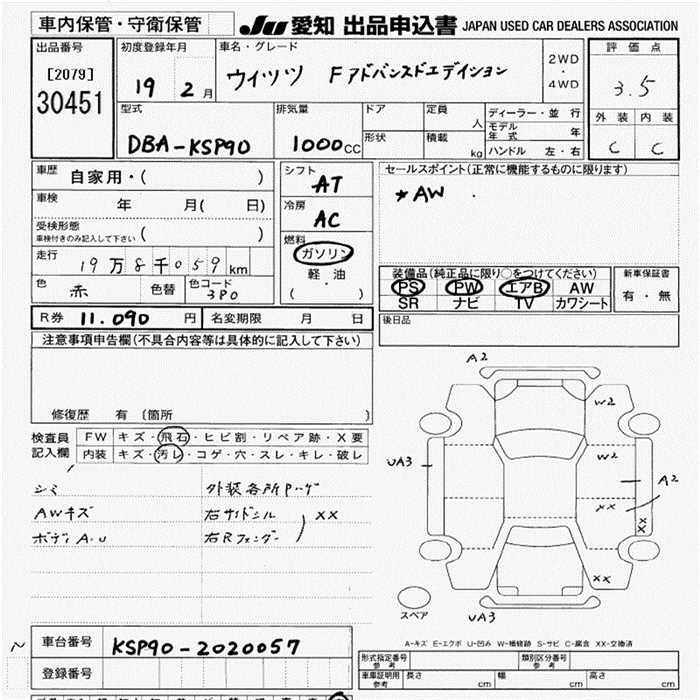 車内保管・守衛保管
JU 愛知 出品申込書 JAPAN USED CAR DEALERS ASSOCIATION
出品番号
[2079]
30451
初度登録年月
19 2 月
車名・グレード
ウィッツ Fアドバンスドエディション
2WD
・
4WD
評価点
3.5
外装 内装
C C
型式
DBA-KSP90
排気量
1000 CC
ドア
形状
定員
人
積載
kg
ディーラー・並行
モデル年式 年
ハンドル 左・右
車歴 自家用・( )
車検 年 月( 日)
受検形態
車検付きのみ記入して下さい ( )
走行 19万8千059 km
色 赤 色替 色コード 3P0
シフト
AT
冷房
AC
燃料
ガソリン
軽・油
( ・ )
セールスポイント(正常に機能するものに限ります)
*AW
装備品(純正品に限り○をつけてください)
PS PW エアB AW
SR ナビ TV カワシート
新車保証書
有・無
R券 11.090 円 名変期限 月 日
後日品
注意事項申告欄(不具合内容等は具体的に記入して下さい)
修復歴 有 〔箇所 〕
検査員
記入欄
FW キズ・飛石・ヒビ割・リペア跡・X要
内装 キズ・汚レ・コゲ・穴・スレ・キレ・破レ
シミ
AWキズ
ボディA・U
外装各所Pハゲ
右サイドシル
右Rフェンダー
XX
A2
W2
W2
UA3
A2
XX
XX
XX
UA3
スペア
A-キズ E-エクボ U-凹み W-補修跡 S-サビ C-腐食 XX-交換済
車台番号 KSP90-2020057
登録番号
型式指定番号
参考
類別区分番号
参考
車庫証明用
参考
長さ cm 幅 cm 高さ cm